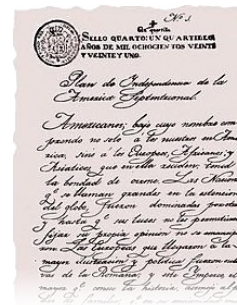 SELLO QUARTO: UN QUARTILLO
AÑOS DE MIL OCHOCIENTOS VEINTE
Y VEINTE Y UNO.
Plan de Independencia de la
America Septentrional.
Americanos, bajo cuyo nombre com
prendo no solo á los nacidos en
rica, sino á los Europeos, Africanos, y
Asiaticos que en ella residen: tened
la bondad de oirme. Las Nacion
q.e se llaman grandes en la estencion
del globo, fueron dominadas por otras
y hasta q.e sus luces no les permitieron
fijar su propia opinion no se emancipa
ron. Las Europeas que llegaron á la
mayor ilustracion y politica fueron escla
vas de la Romana; y este Imperio el
mayor q.e conoce la historia, asemejó al